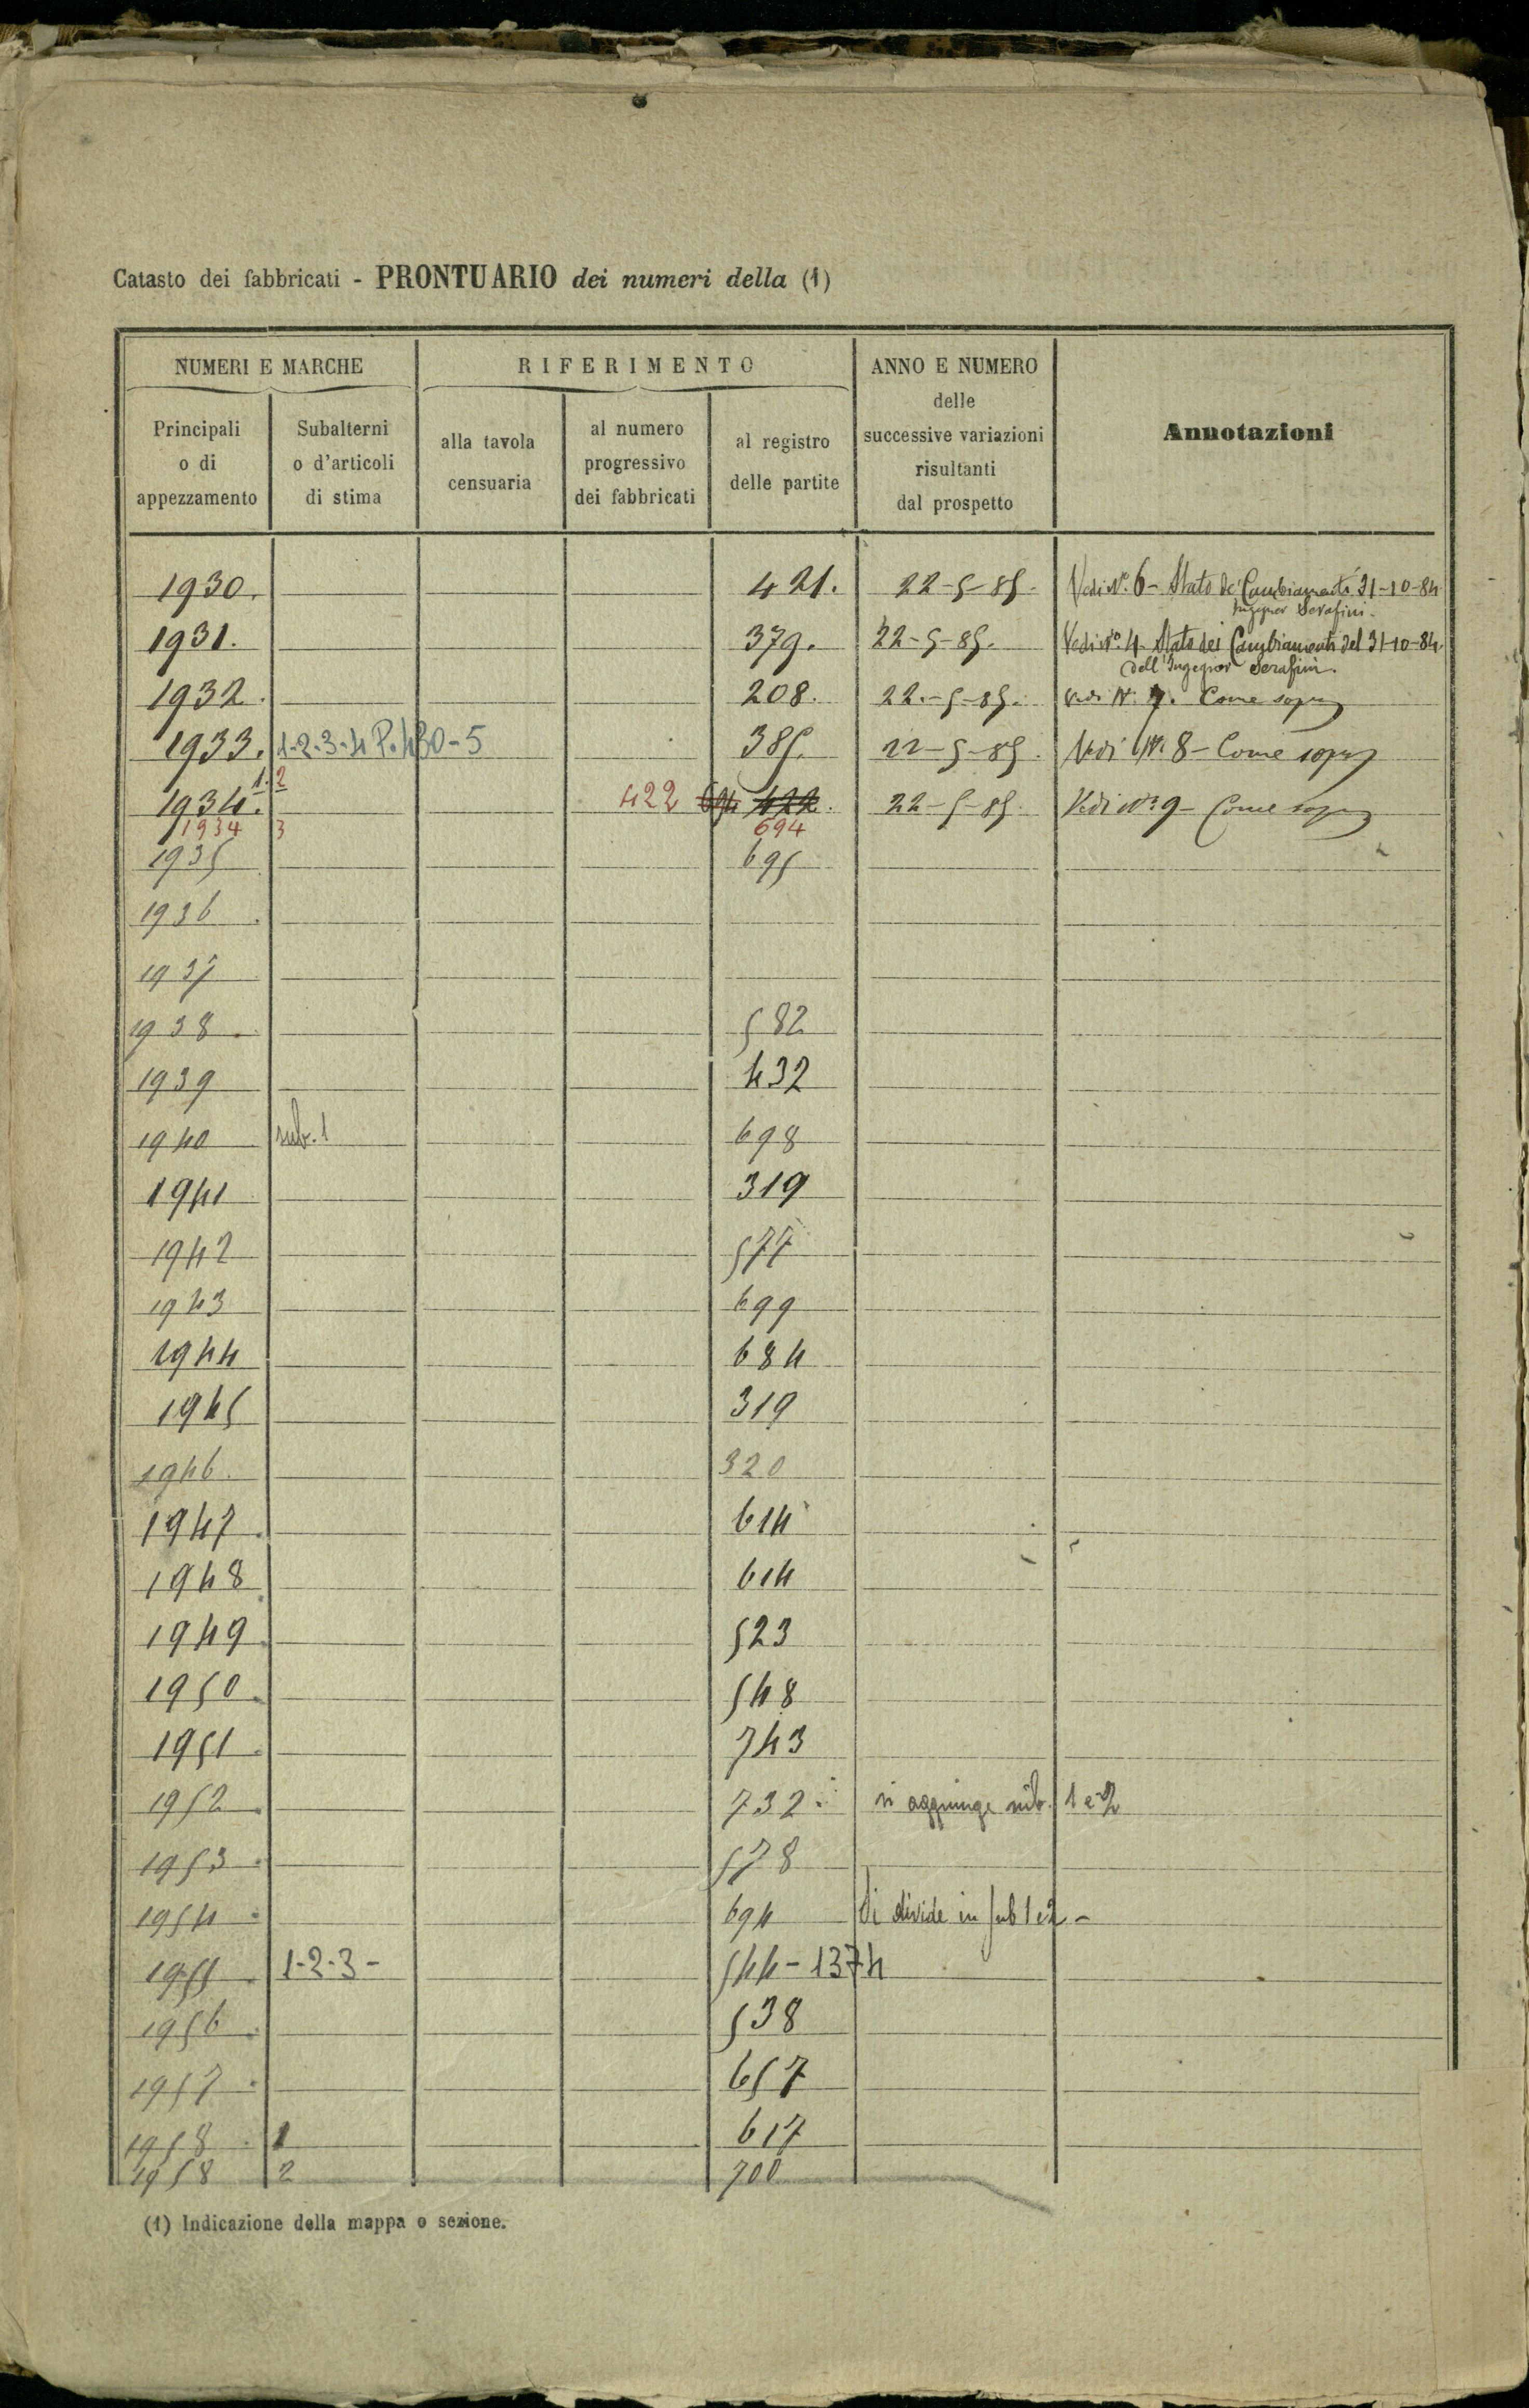 Catasto dei fabbricati - PRONTUARIO dei numeri della (1)
NUMERI E MARCHE
RIFERIMENTO
ANNO E NUMERO
delle
successive variazioni
risultanti
dal prospetto
Annotazioni
Principali
o di
appezzamento
Subalterni
o d'articoli
di stima
alla tavola
censuaria
al numero
progressivo
dei fabbricati
al registro
delle partite
1930. 421. 22-5-85. Vedi N.° 6 - Stato de' Cambiamenti 31-10-84
Ingegner Serafini.
1931. 379. 22-5-85. Vedi N.° 4 Stato dei Cambiamenti del 31-10-84
dell'Ingegner Serafini.
1932. 208. 22-5-85. Vedi N. 7. Come sopra
1933. 1-2-3-4 P. 430-5 385. 22-5-85. Vedi N. 8 - Come sopra
1934. 1.2 422 694 422. 22-5-85. Vedi N.° 9 - Come sopra
1934 3 694
1935 695
1936
1937
1938 582
1939 432
1940 sub. 1 698
1941 319
1942 577
1943 699
1944 684
1945 319
1946 320
1947 614
1948 614
1949 523
1950 548
1951 743
1952 732 si aggiunge sub. 1 e 2
1953 578
1954 694 Si divide in sub 1 e 2 -
1955 1-2-3- 544 - 1374
1956 538
1957 657
1958 1 617
1958 2 700
(1) Indicazione della mappa o sezione.